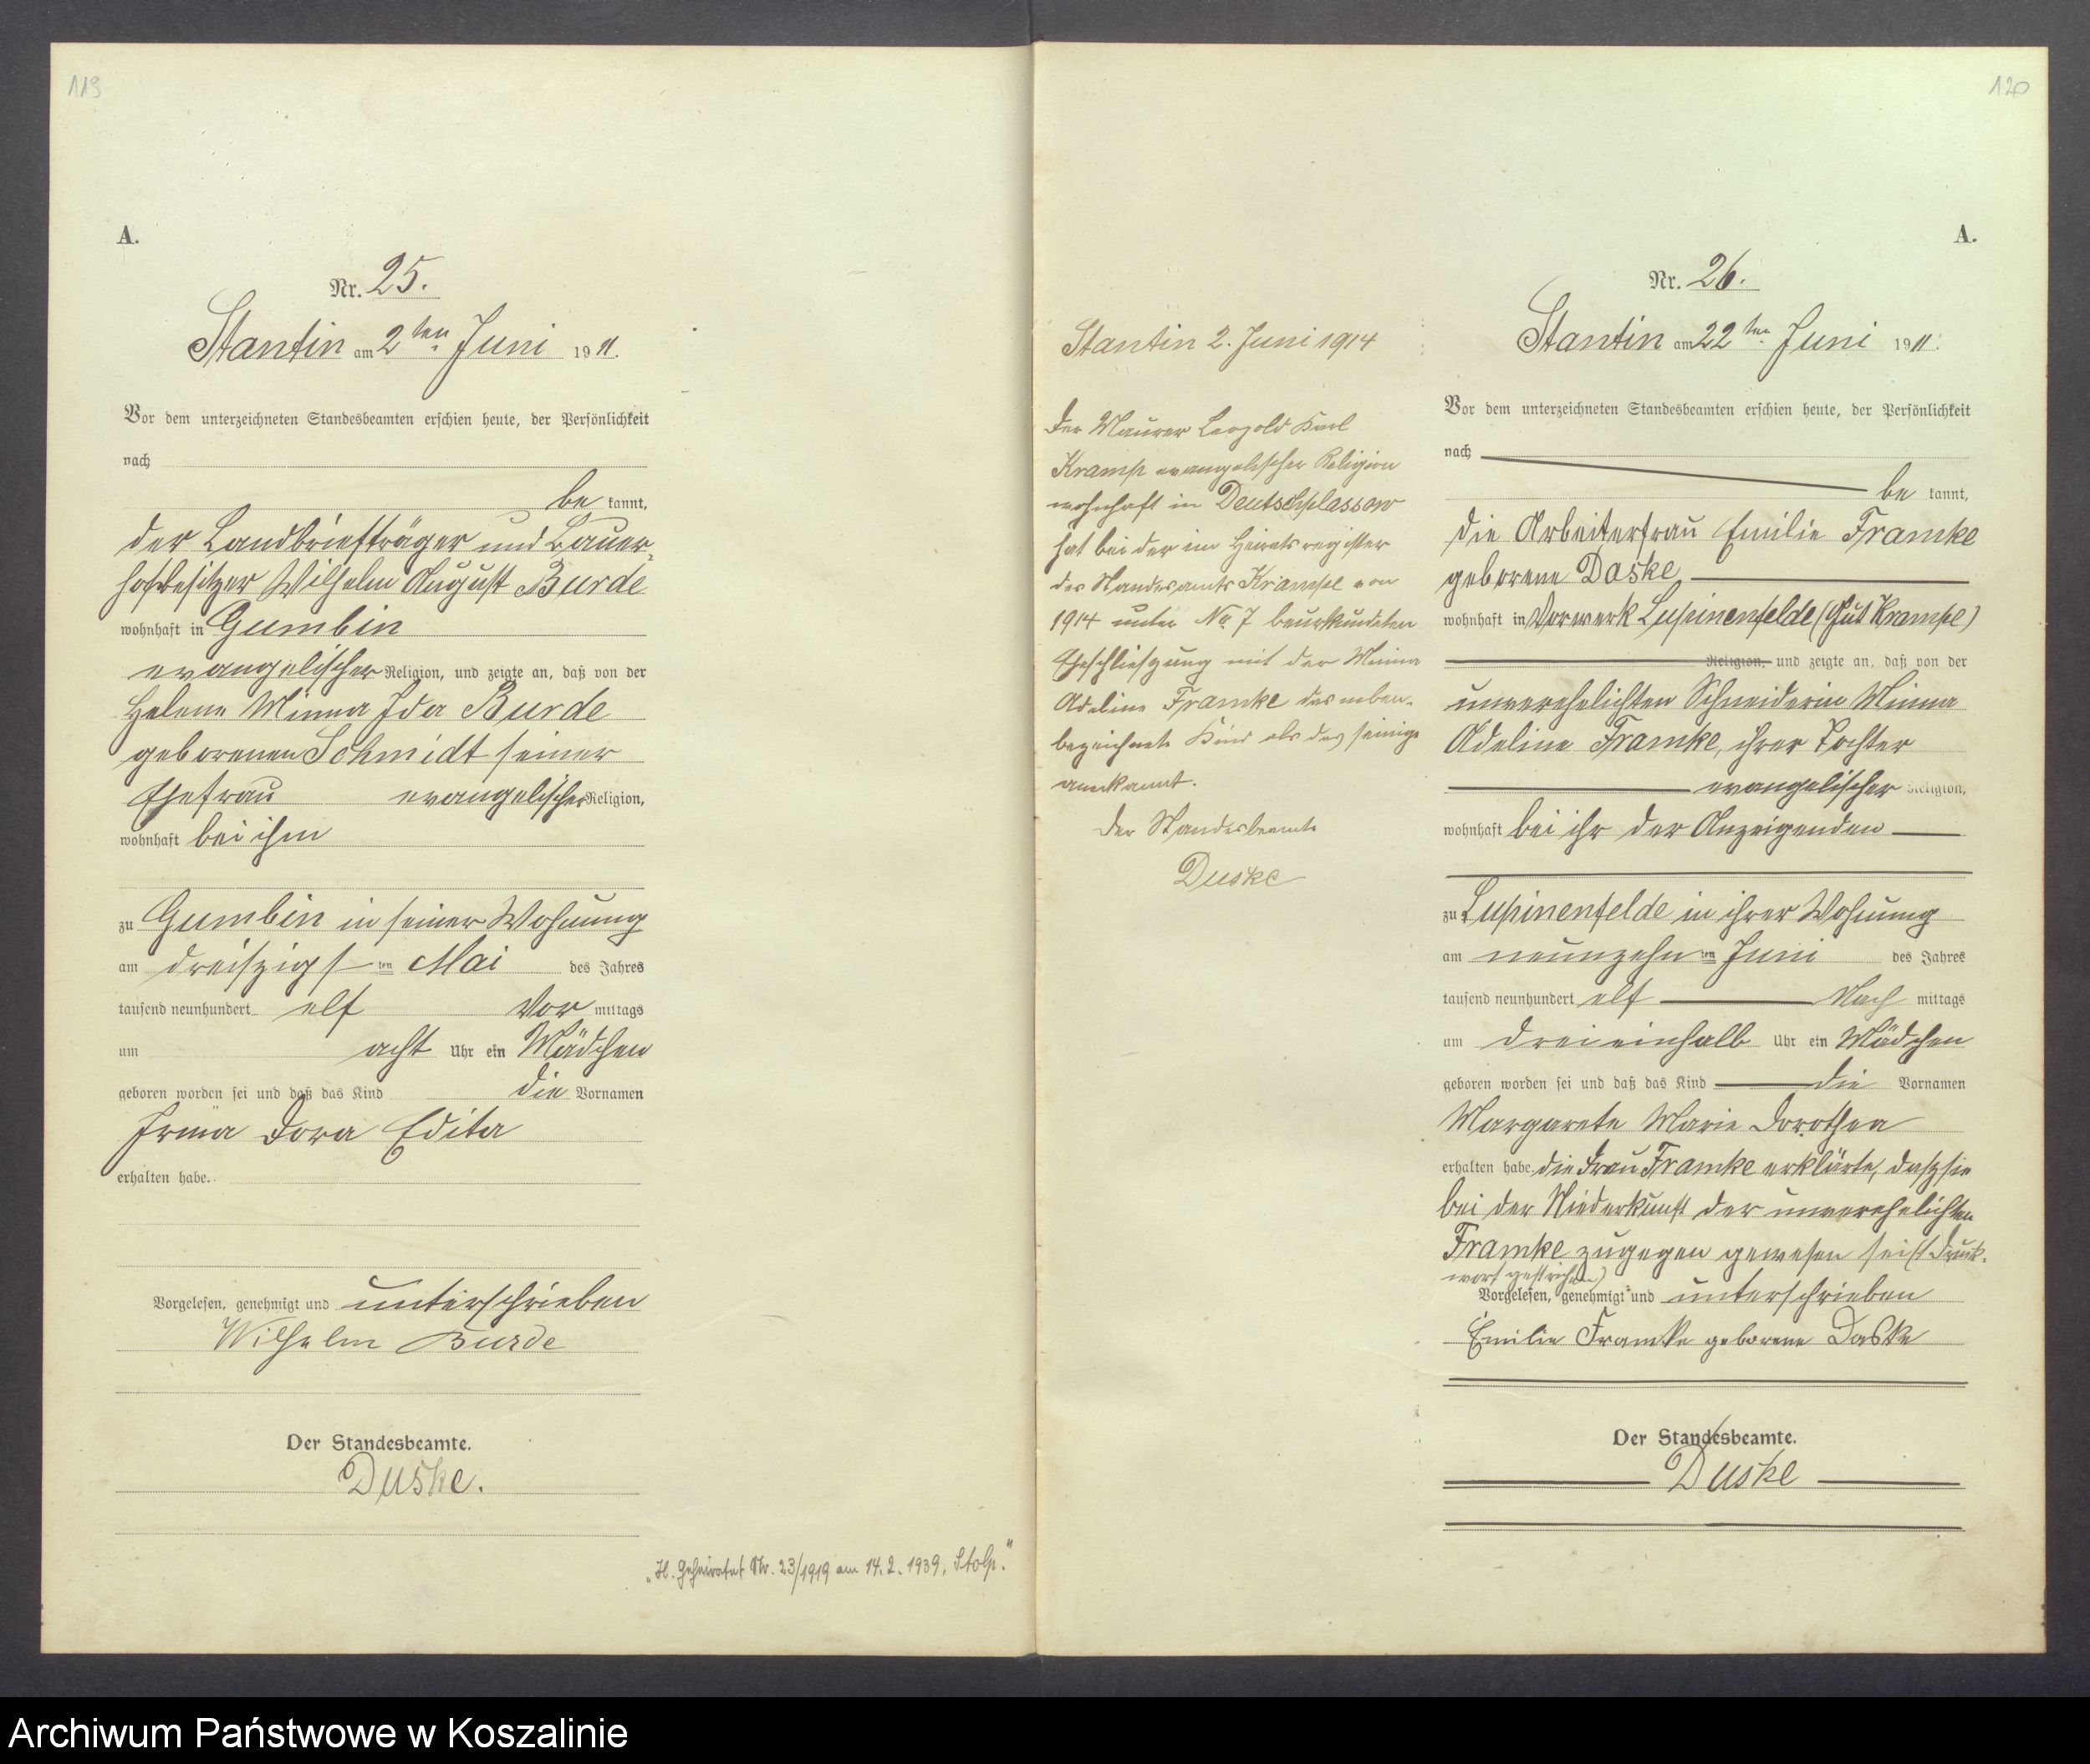 119
A.
Nr. 25.
Stantin am 2ten Juni 1911.
Vor dem unterzeichneten Standesbeamten erschien heute, der Persönlichkeit
nach
be kannt,
der Landbriefträger und Bauer-
hofbesitzer Wilhelm August Burde
wohnhaft in Gumbin
evangelischer Religion, und zeigte an, daß von der
Helene Minna Ida Burde
geborenen Schmidt seiner
Ehefrau evangelischer Religion,
wohnhaft bei ihm
zu Gumbin in seiner Wohnung
am dreiszigsten Mai des Jahres
tausend neunhundert elf Vor mittags
um acht Uhr ein Mädchen
geboren worden sei und daß das Kind die Vornamen
Irma Dora Edita
erhalten habe.
Vorgelesen, genehmigt und unterschrieben
Wilhelm Burde
Der Standesbeamte.
Duske.
„Geheiratet Nr. 23/1919 am 14.2.1939, Stolp."
120
A.
Nr. 26.
Stantin am 22ten Juni 1911.
Vor dem unterzeichneten Standesbeamten erschien heute, der Persönlichkeit
nach
be kannt,
die Arbeiterfrau Emilie Framke
geborene Daske
wohnhaft in Vorwerk Lupinenfelde (Gut Krampe)
Religion, und zeigte an, daß von der
unverehelichten Schneiderin Minna
Adeline Framke, ihrer Tochter
evangelischer Religion,
wohnhaft bei ihr der Anzeigenden
zu Lupinenfelde in ihrer Wohnung
am neunzehnten Juni des Jahres
tausend neunhundert elf Nach mittags
um drei einhalb Uhr ein Mädchen
geboren worden sei und daß das Kind die Vornamen
Margarete Marie Dorothea
erhalten habe. die Frau Framke erklärte, dasz sie
bei der Niederkunft der unverehelichten
Framke zugegen gewesen sei (1 Druck-
wort gestrichen)
Vorgelesen, genehmigt und unterschrieben
Emilie Framke geborene Daske
Der Standesbeamte.
Duske
Stantin 2. Juni 1914
Der Maurer Leopold Karl
Kramp evangelischer Religion
wohnhaft in Deutschplassow
hat bei der im Heiratsregister
des Standesamts Krampe von
1914 unter No 7 beurkundeten
Eheschlieszung mit der Minna
Adeline Framke das neben-
bezeichnete Kind als das seinige
anerkannt.
Der Standesbeamte
Duske
Archiwum Państwowe w Koszalinie